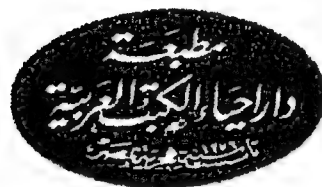 مطبعة
دار إحياء الكتب العربية